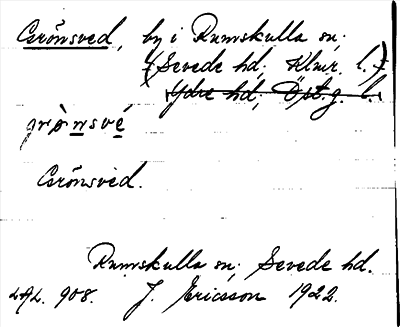 Grönsved, by i Rumskulla sn;
(Sevede hd; Klmr. l.)
Ydre hd, Öst.g. l.
grònsvé
Grönsved.
Rumskulla sn; Sevede hd.
908. J. Ericsson 1922.